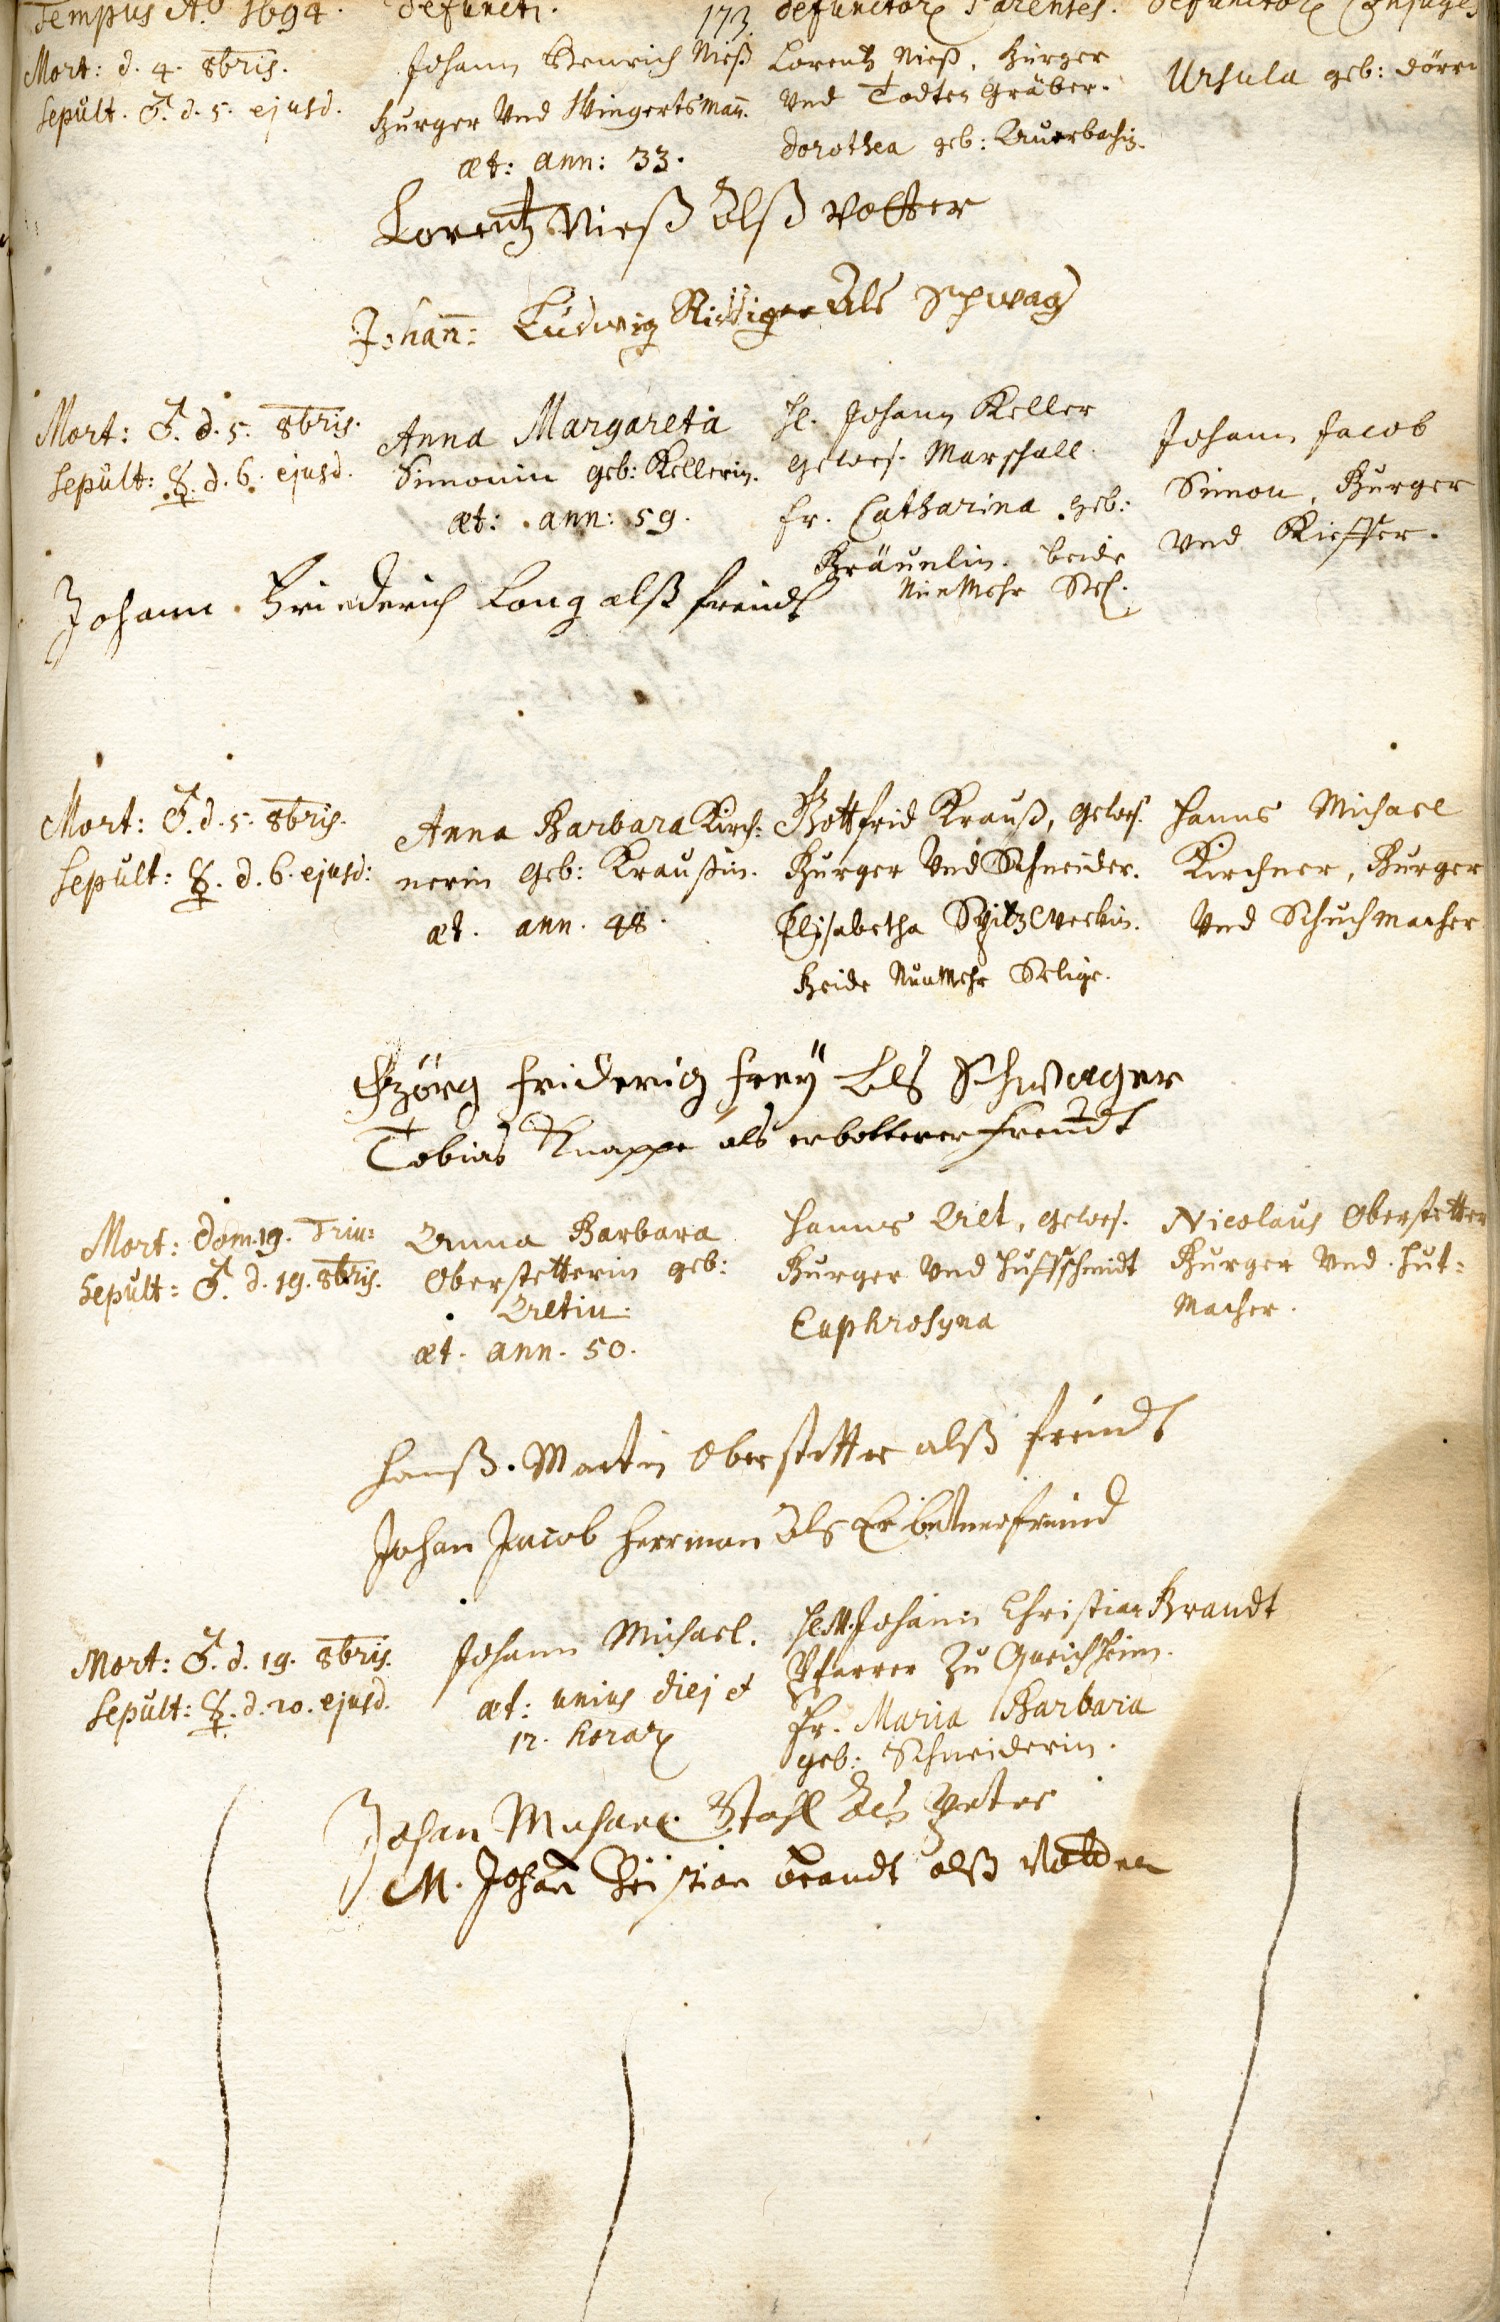 Tempus Aō. 1694.
defuncti.
173.
defunctorū Parentes.
defunctorū Conjuges
Mort: d. 4. 8bris.
Sepult. ♂. d. 5. ejusd.
Johann Henrich Nieß
Burger Vnd Wingertsmañ.
æt: ann: 33.
Lorentz Nieß, Burger
Vnd Todten Gräber.
Dorothea geb: Auerbachin.
Ursula geb: Dörrin
Lorentz Nieß Alß Vatter
Johañ: Ludwig Rüdiger Als Schwag
Mort: ♂. d. 5. 8bris.
Sepult: ☿. d. 6. ejusd.
Anna Margareta
Simonin geb: Kellerin.
æt: ann: 59.
H. Johann Keller
gewes. Marschall.
Fr. Catharina geb:
Bräunlin. beide
NunMehr Seel.
Johann Jacob
Simon, Burger
Vnd Kieffer.
Johann Friederich Lang alß freindt
Mort: ♂. d. 5. 8bris.
Sepult: ☿. d. 6. ejusd:
Anna Barbara Kirch:
nerin geb: Kraußin.
æt. ann. 48.
Gottfrid Krauß, gewes.
Burger Vnd Schneider.
Elisabetha Spitzweckin.
Beide NunMehr Selige.
Hanns Michael
Kirchner, Burger
Vnd Schuchmacher
Görg Friderig Freÿ Als Schwager
Tobias Knappe als erbottener Freundt
Mort: Dom. 19. Trin:
Sepult: ♂. d. 19. 8bris.
Anna Barbara
Oberstetterin geb:
æt. ann. 50.
Hanns gewes.
Burger Vnd Huffschmidt
Euphrosyna
Nicolaus Oberstetter
Burger Vnd Hut-
Macher.
Hanß Martin Oberstetter alß freindt
Johan Jacob Herrman Als Erbettnerfreind
Mort: ♂. d. 19. 8bris.
Sepult: ☿. d. 20. ejusd.
Johann Michael.
æt: unius diej et
12. horarū
H. M. Johann Christian Brandt
Pfarrer Zu
Fr. Maria Barbara
geb: Schneiderin.
Johan Michael Stahl Als Peter
M. Johañ Christian Brandt alß Vatter